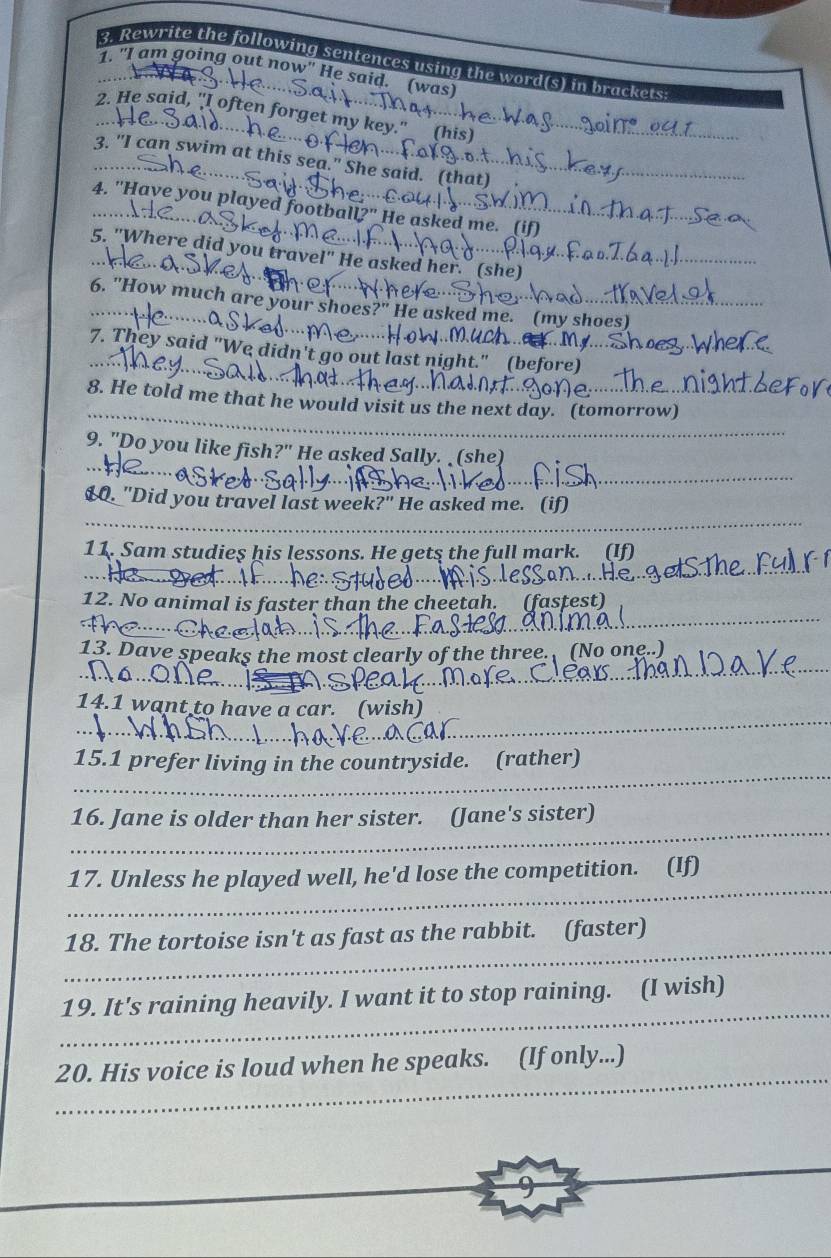 3. Rewrite the following sentences using the word(s) in brackets:
1. "I am going out now" He said. (was)
He Sait That he was going out
2. He said, "I often forget my key." (his)
He Said he often forgot his key
3. "I can swim at this sea." She said. (that)
She Said She could swim in that Sea
4. "Have you played football?" He asked me. (if)
He asked me if I had Play FooTball
5. "Where did you travel" He asked her. (she)
He asked her where She had traveled
6. "How much are your shoes?" He asked me. (my shoes)
He asked me How much my Shoes where
7. They said "We didn't go out last night." (before)
They Said that they hadnot gone The night befor
8. He told me that he would visit us the next day. (tomorrow)
9. "Do you like fish?" He asked Sally. (she)
He asked Sally if She liked Fish
10. "Did you travel last week?" He asked me. (if)
11. Sam studies his lessons. He gets the full mark. (If)
If he studed his lesson He gets The Full
12. No animal is faster than the cheetah. (fastest)
the Cheelah is the Fastess animal
13. Dave speaks the most clearly of the three. (No one..)
No one Speak more Clears than Dave
14.1 want to have a car. (wish)
I Whsh I have a car
15.1 prefer living in the countryside. (rather)
16. Jane is older than her sister. (Jane's sister)
17. Unless he played well, he'd lose the competition. (If)
18. The tortoise isn't as fast as the rabbit. (faster)
19. It's raining heavily. I want it to stop raining. (I wish)
20. His voice is loud when he speaks. (If only...)
9